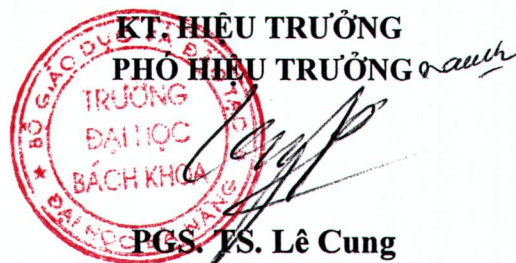 KT. HIỆU TRƯỞNG
PHÓ HIỆU TRƯỞNG
BỘ GIÁO DỤC VÀ ĐÀO TẠO
TRƯỜNG
ĐẠI HỌC
BÁCH KHOA
ĐẠI HỌC ĐÀ NẴNG
PGS. TS. Lê Cung